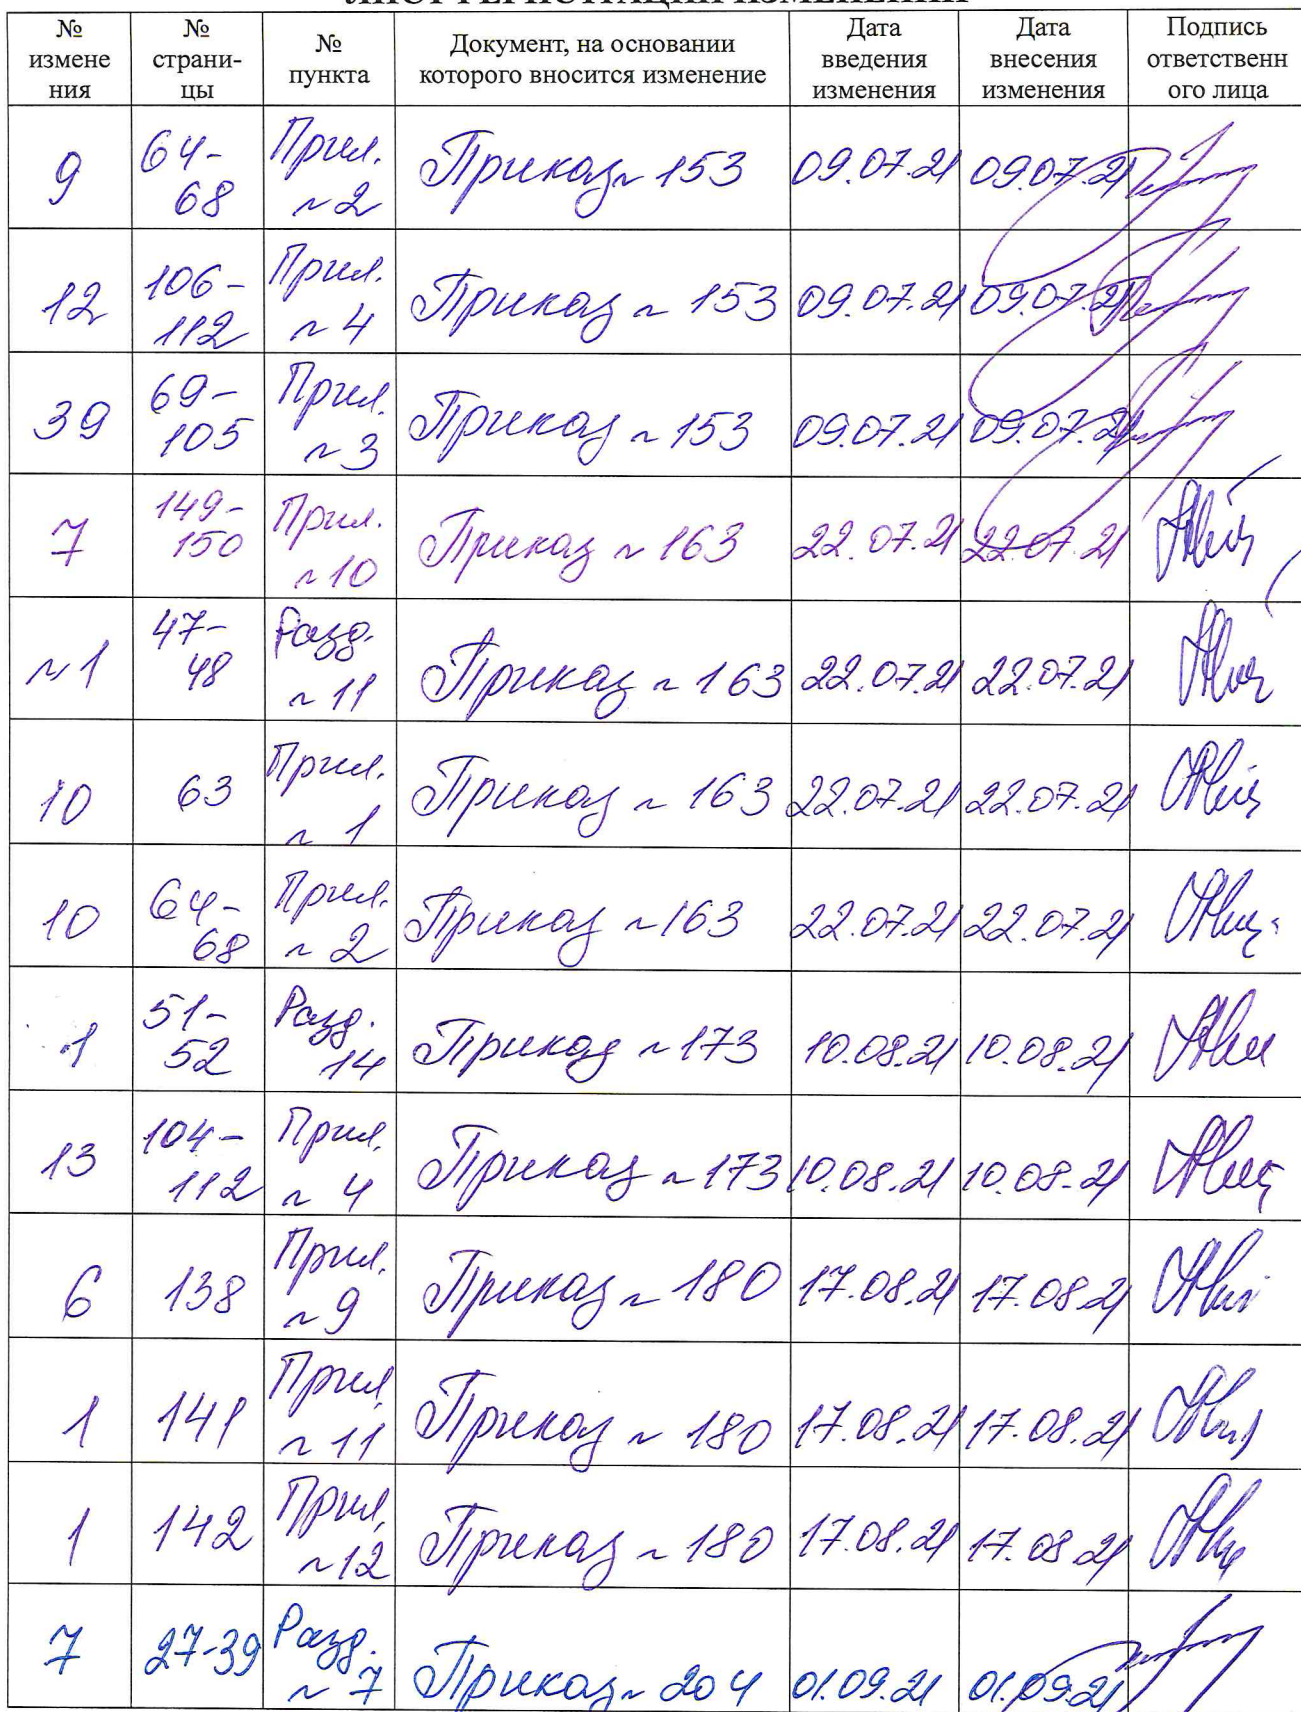 ЛИСТ РЕГИСТРАЦИИ ИЗМЕНЕНИЙ
№ измене ния | № страни- цы | № пункта | Документ, на основании которого вносится изменение | Дата введения изменения | Дата внесения изменения | Подпись ответственн ого лица
9 | 64-68 | Прил. ~2 | Приказ ~ 153 | 09.07.21 | 09.07.21
12 | 106-112 | Прил. ~4 | Приказ ~ 153 | 09.07.21 | 09.07.21
39 | 69-105 | Прил. ~3 | Приказ ~ 153 | 09.07.21 | 09.07.21
7 | 149-150 | Прил. ~10 | Приказ ~ 163 | 22.07.21 | 22.07.21
~1 | 47-48 | Разд. ~11 | Приказ ~ 163 | 22.07.21 | 22.07.21
10 | 63 | Прил. ~1 | Приказ ~ 163 | 22.07.21 | 22.07.21
10 | 64-68 | Прил. ~2 | Приказ ~ 163 | 22.07.21 | 22.07.21
1 | 51-52 | Разд. 14 | Приказ ~ 173 | 10.08.21 | 10.08.21
13 | 104-112 | Прил. ~4 | Приказ ~ 173 | 10.08.21 | 10.08.21
6 | 138 | Прил. ~9 | Приказ ~ 180 | 17.08.21 | 17.08.21
1 | 141 | Прил. ~11 | Приказ ~ 180 | 17.08.21 | 17.08.21
1 | 142 | Прил. ~12 | Приказ ~ 180 | 17.08.21 | 17.08.21
7 | 27-39 | Разд. ~7 | Приказ ~ 204 | 01.09.21 | 01.09.21